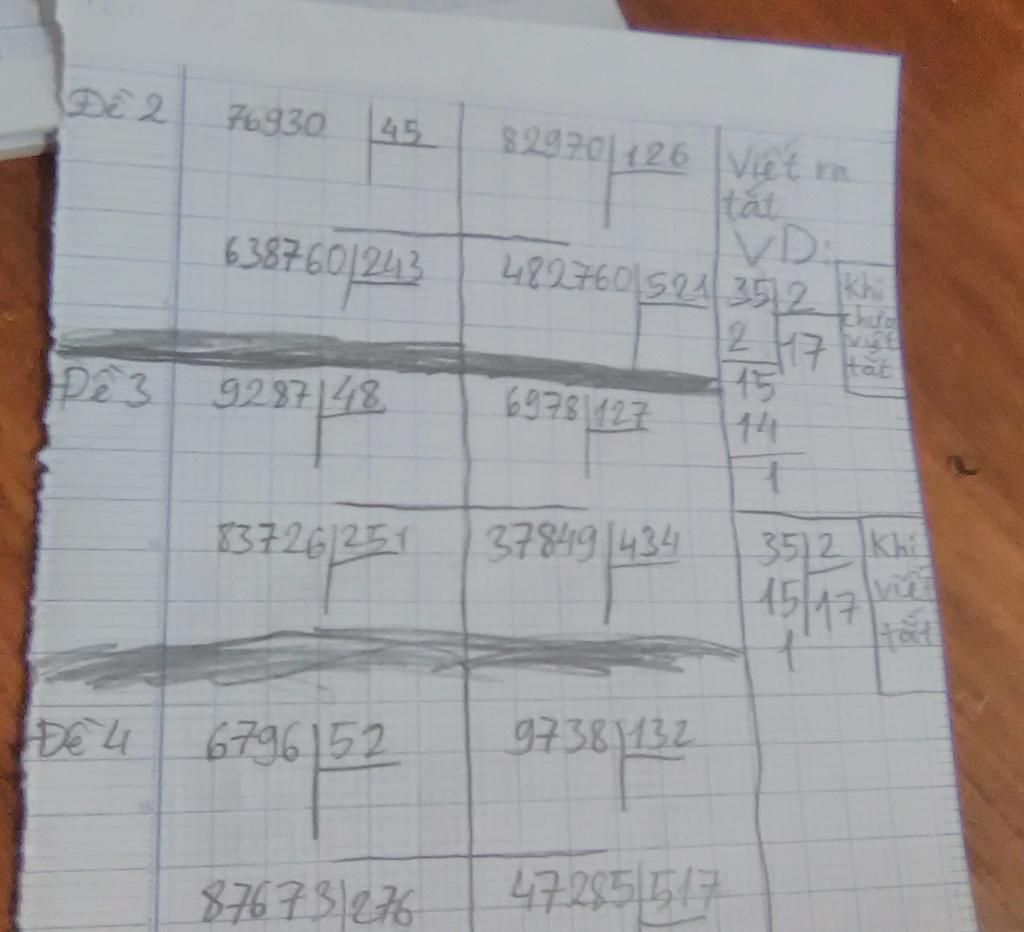 Đề 2
76930 45
82970 126
638760 243
482760 521
Đề 3
9287 48
6978 127
83726 251
37849 434
Đề 4
6796 52
9738 132
87673 276
47285 517
Viết ra
tắt
VD:
35 2
2 17
15
14
1
Khi
chưa
viết
tắt
35 2
15 17
1
Khi
viết
tắt